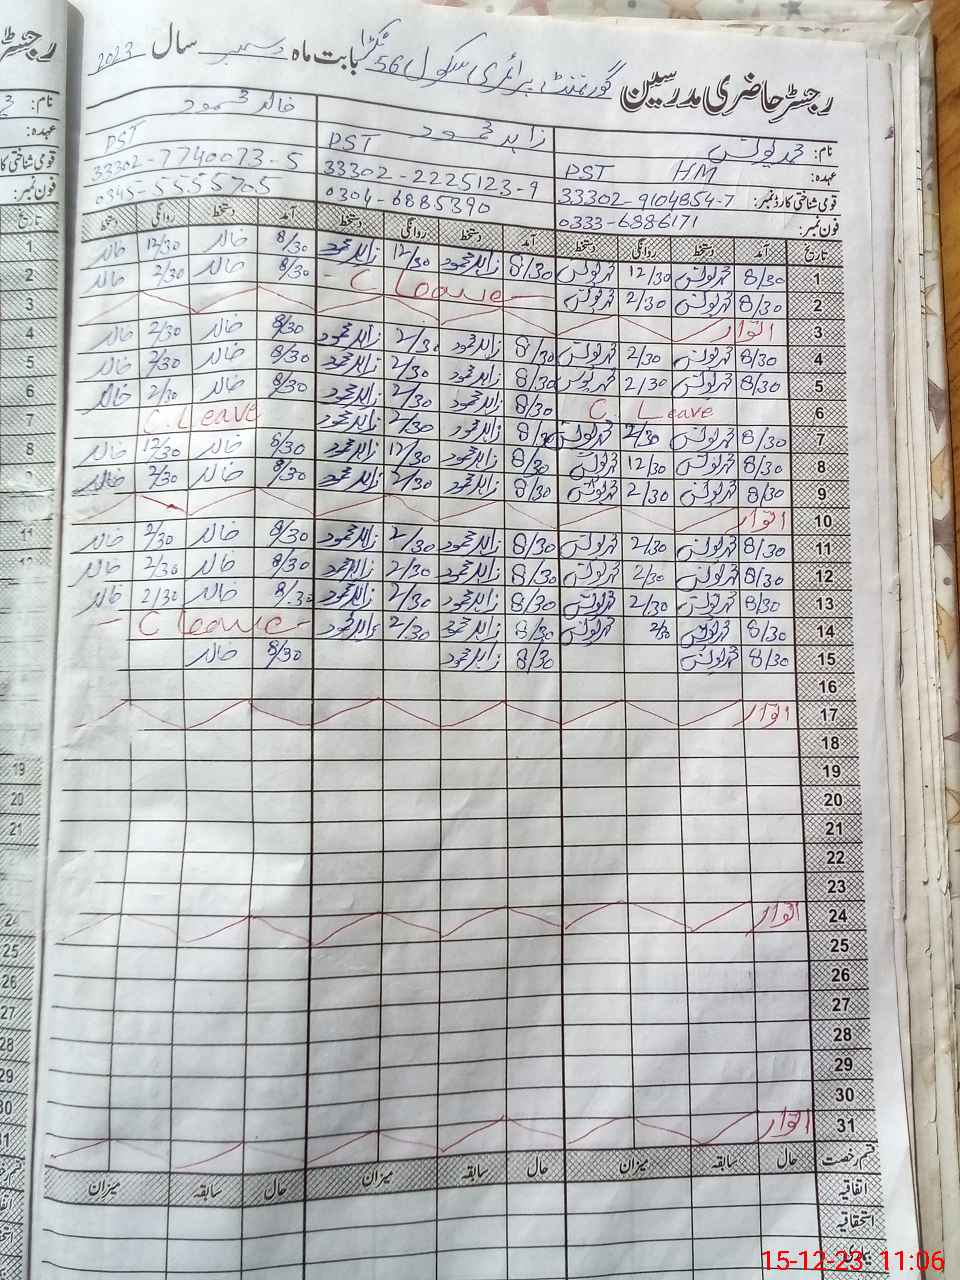 رجسٹر حاضری مدرسین گورنمنٹ پرائمری سکول 56 بابت ماہ دسمبر سال 2023
نام: محمد یونس زاہد محمود خالد محمود
عہدہ: PST HM PST PST
قومی شناختی کارڈ نمبر: 33302-9104854-7 33302-2225123-9 33302-7740073-5
فون نمبر: 0333-6886171 0304-6885390 0345-5555705
تاریخ آمد دستخط روانگی دستخط آمد دستخط روانگی دستخط آمد دستخط روانگی دستخط
1 8/30 محمد یونس 12/30 محمد یونس 8/30 زاہد محمود 12/30 زاہد محمود 8/30 خالد 12/30 خالد
2 8/30 محمد یونس 2/30 محمد یونس - C leave - 8/30 خالد 2/30 خالد
3 اتوار
4 8/30 محمد یونس 2/30 محمد یونس 8/30 زاہد محمود 2/30 زاہد محمود 8/30 خالد 2/30 خالد
5 8/30 محمد یونس 2/30 محمد یونس 8/30 زاہد محمود 2/30 زاہد محمود 8/30 خالد 2/30 خالد
6 C. Leave 8/30 زاہد محمود 2/30 زاہد محمود 8/30 خالد 2/30 خالد
7 8/30 محمد یونس 2/30 محمد یونس 8/30 زاہد محمود 2/30 زاہد محمود C. Leave
8 8/30 محمد یونس 12/30 محمد یونس 8/30 زاہد محمود 12/30 زاہد محمود 8/30 خالد 12/30 خالد
9 8/30 محمد یونس 2/30 محمد یونس 8/30 زاہد محمود 2/30 زاہد محمود 8/30 خالد 2/30 خالد
10 اتوار
11 8/30 محمد یونس 2/30 محمد یونس 8/30 زاہد محمود 2/30 زاہد محمود 8/30 خالد 2/30 خالد
12 8/30 محمد یونس 2/30 محمد یونس 8/30 زاہد محمود 2/30 زاہد محمود 8/30 خالد 2/30 خالد
13 8/30 محمد یونس 2/30 محمد یونس 8/30 زاہد محمود 2/30 زاہد محمود 8/30 خالد 2/30 خالد
14 8/30 محمد یونس 2/30 محمد یونس 8/30 زاہد محمود 2/30 زاہد محمود - C leave -
15 8/30 محمد یونس 8/30 زاہد محمود 8/30 خالد
16
17 اتوار
18
19
20
21
22
23
24 اتوار
25
26
27
28
29
30
31 اتوار
قسم رخصت حال سابقہ میزان حال سابقہ میزان حال سابقہ میزان
اتفاقیہ
استحقاقیہ
15-12-23 11:06